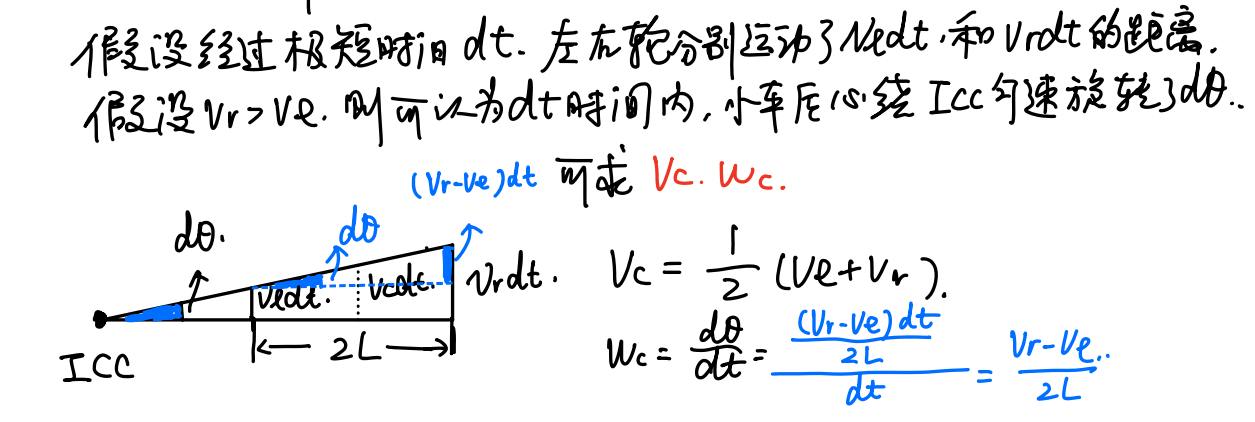 假设经过极短时间dt. 左右轮分别运动了Vedt.和Vrdt的距离.
假设Vr>Ve. 则可认为dt时间内, 小车后心绕ICC匀速旋转了dθ..
可求 Vc. Wc.
(Vr-Ve)dt
dθ.
dθ
Vedt.
Vcdt.
Vrdt.
ICC
2L
Vc = 1/2 (Ve+Vr).
Wc = dθ/dt = ((Vr-Ve)dt/2L)/dt = Vr-Ve../2L